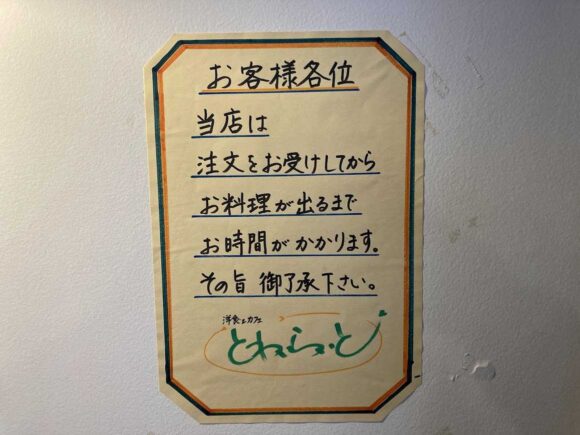 お客様各位
当店は
注文をお受けしてから
お料理が出るまで
お時間がかかります。
その旨 御了承下さい。
洋食とカフェ
とねらっと